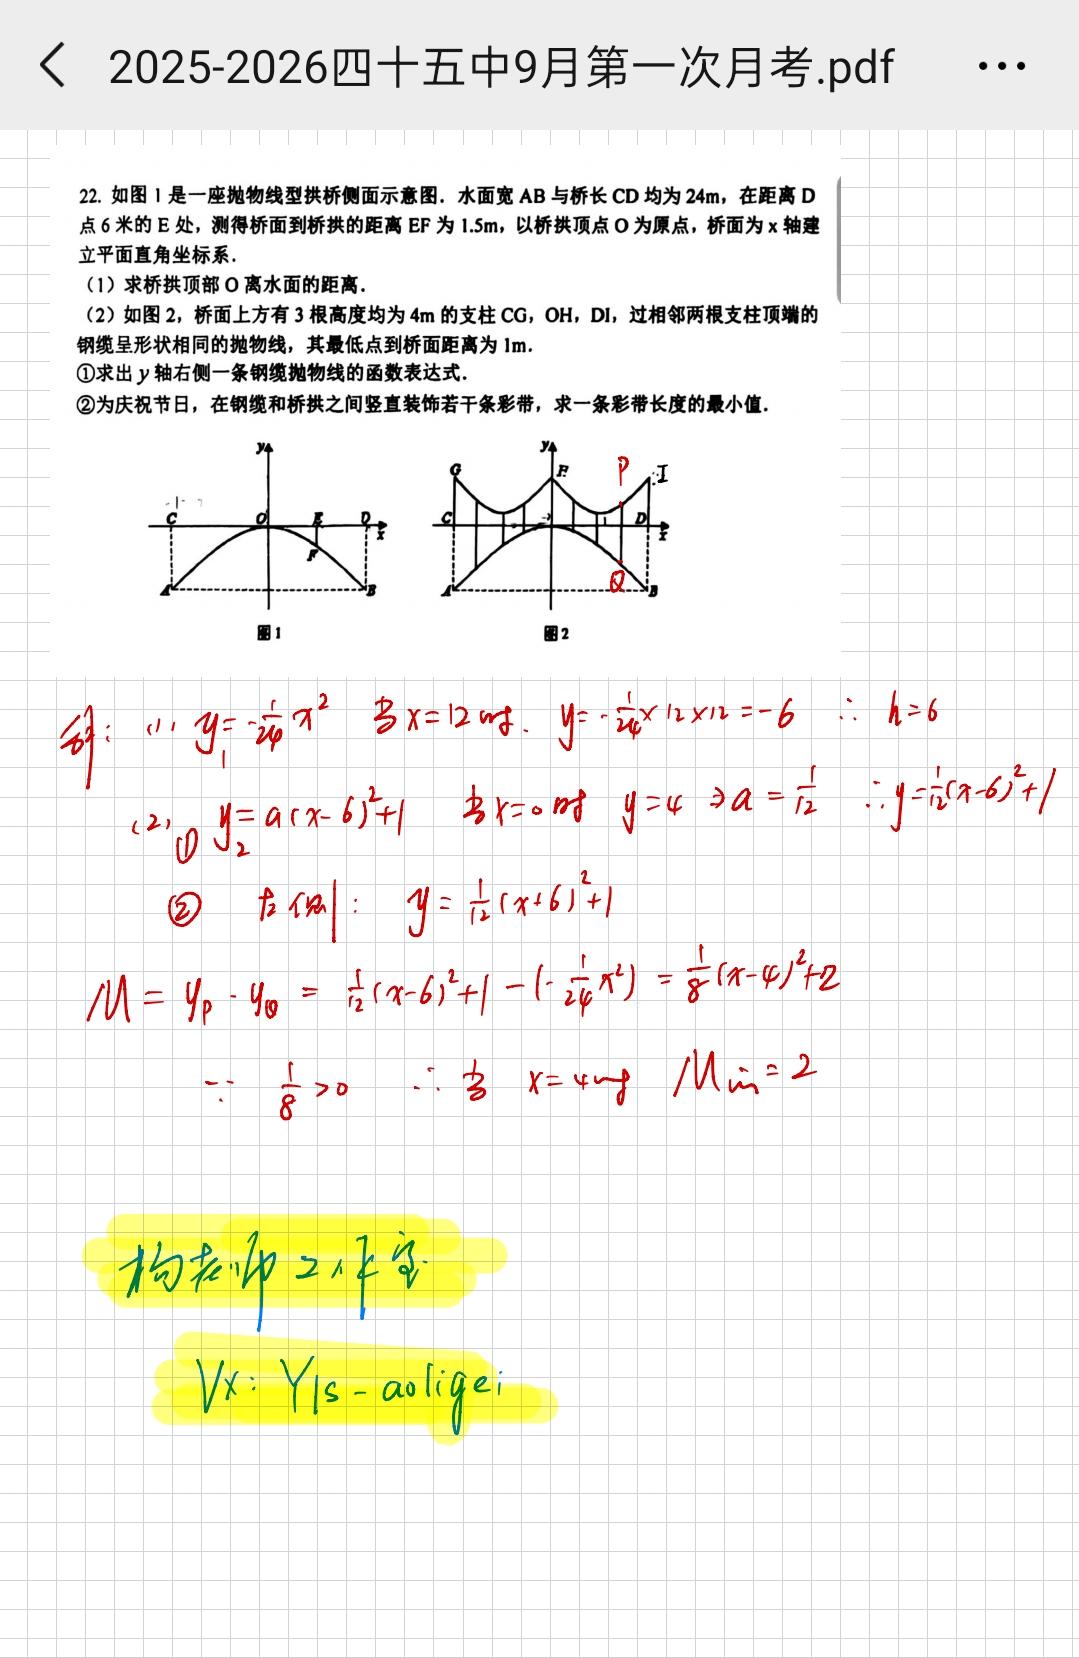 2025-2026四十五中9月第一次月考.pdf
22. 如图1是一座抛物线型拱桥侧面示意图. 水面宽 AB 与桥长 CD 均为 24m，在距离 D
点 6 米的 E 处，测得桥面到桥拱的距离 EF 为 1.5m，以桥拱顶点 O 为原点，桥面为 x 轴建
立平面直角坐标系.
（1）求桥拱顶部 O 离水面的距离.
（2）如图 2，桥面上方有 3 根高度均为 4m 的支柱 CG，OH，DI，过相邻两根支柱顶端的
钢缆呈形状相同的抛物线，其最低点到桥面距离为 1m.
①求出 y 轴右侧一条钢缆抛物线的函数表达式.
②为庆祝节日，在钢缆和桥拱之间竖直装饰若干条彩带，求一条彩带长度的最小值.
y
C O E D x
F
A B
图1
y
G H P I
C D x
A Q B
图2
解: (1) y₁=-1/24 x² 当x=12时. y=-1/24×12×12=-6 ∴ h=6
(2) ① y₂=a(x-6)²+1 当x=0时 y=4 ⇒a=1/12 ∴y=1/12(x-6)²+1
② 左侧: y=1/12(x+6)²+1
M=yP-yQ=1/12(x-6)²+1-(-1/24x²)=1/8(x-4)²+2
∵ 1/8>0 ∴当 x=4时 Mmin=2
老师工作室
Vx: Yls-aoligei